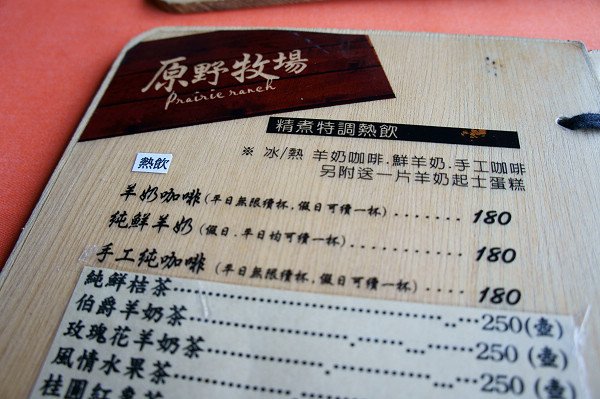 原野牧場
Prairie ranch
精煮特調熱飲
熱飲
※ 冰/熱 羊奶咖啡.鮮羊奶.手工咖啡
另附送一片羊奶起士蛋糕
羊奶咖啡(平日無限續杯,假日可續一杯)........180
純鮮羊奶(假日.平日均可續一杯)...........180
手工純咖啡(平日無限續杯,假日可續一杯)......180
純鮮桔茶...250(壺)
伯爵羊奶茶...250(壺)
玫瑰花羊奶茶...250(壺)
風情水果茶
桂圓紅棗茶